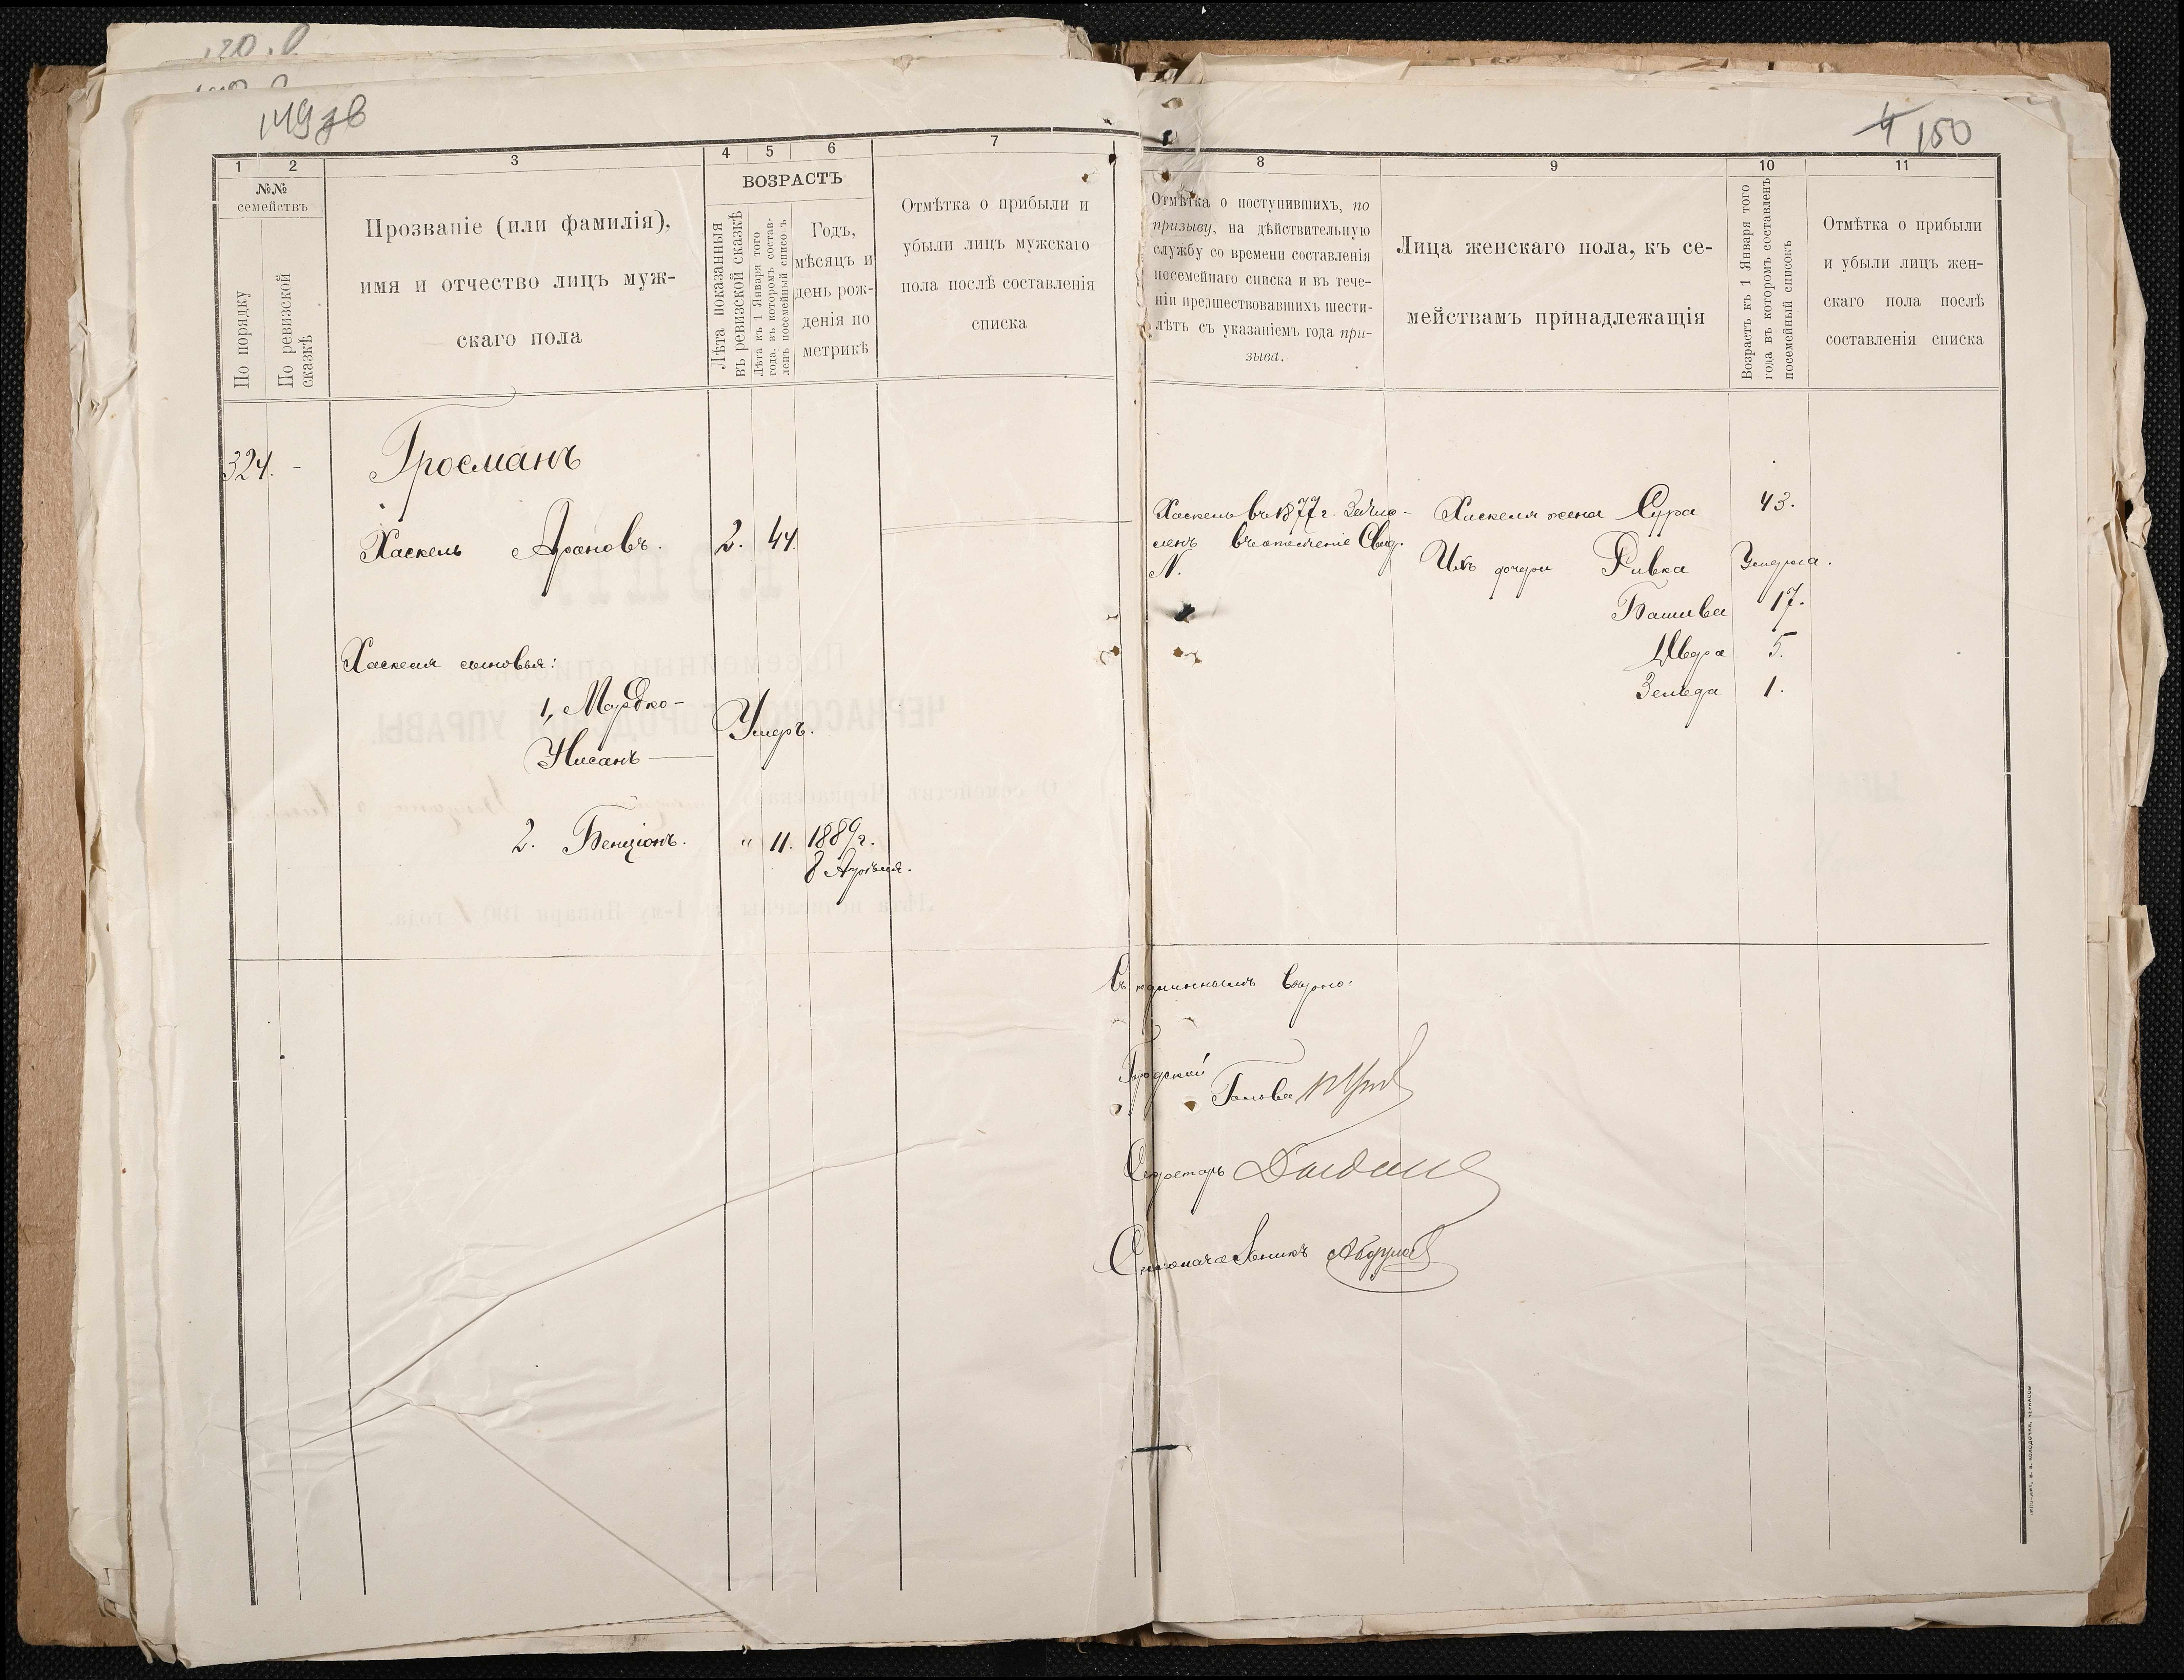 149 об
4 150
1 2 3 4 5 6 7
№№ семействъ
По порядку
По ревизской сказкѣ
Прозваніе (или фамилія),
имя и отчество лицъ муж-
скаго пола
ВОЗРАСТЪ
Лѣта показанныя
въ ревизской сказкѣ
Лѣта къ 1 Января того
года, въ которомъ состав-
ленъ посемейный списокъ
Годъ,
мѣсяцъ и
день рож-
денія по
метрикѣ
Отмѣтка о прибыли и
убыли лицъ мужскаго
пола послѣ составленія
списка
8 9 10 11
Отмѣтка о поступившихъ, по
призыву, на дѣйствительную
службу со времени составленія
посемейнаго списка и въ тече-
ніи предшествовавшихъ шести-
лѣтъ съ указаніемъ года при-
зыва.
Лица женскаго пола, къ се-
мействамъ принадлежащія
Возрастъ къ 1 Января того
года въ которомъ составленъ
посемейный списокъ
Отмѣтка о прибыли
и убыли лицъ жен-
скаго пола послѣ
составленія списка
324. - Гросманъ
Хаскель Ароновъ. 2. 44.
Хаскеля сыновья:
1, Мордко-
Нисанъ — Умеръ.
2. Бенціонъ. " 11. 1889 г.
8 Апрѣля.
Хаскель въ 1877 г. Зачис-
ленъ въ ополченіе Свид.
N.
Хаскеля жена Сура 43.
Ихъ дочери Ривка Умерла.
Башива 17.
Двера 5.
Земеда 1.
Съ подлиннымъ вѣрно:
Городской
Голова
Секретарь
Столоначальникъ